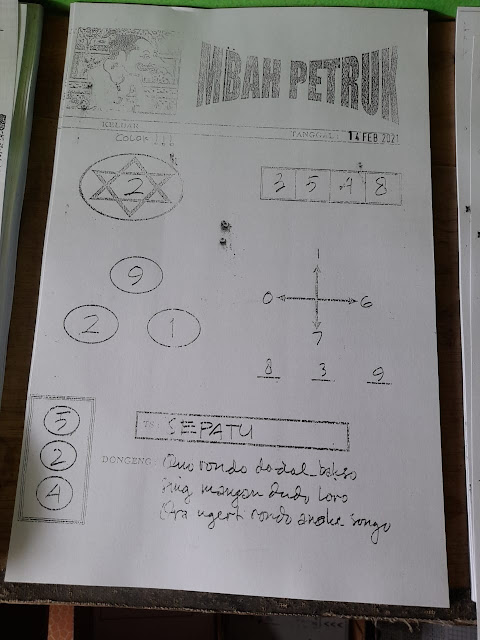 MBAH PETRUK
KELUAR
TANGGAL : 14 FEB 2021
COLOK !!!
2
3 5 4 8
9
2 1
1
0 6
7
8 3 9
5
2
4
TS: SEPATU
DONGENG: Ono rondo dodol bakso
Sing mangan dudo loro
Ora ngerti rondo anake songo